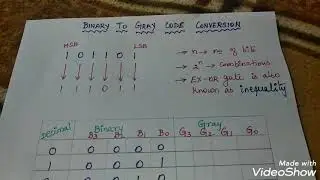 BINARY TO GRAY CODE CONVERSION
MSB LSB
1 0 1 1 0 1
→ n → no of bits
→ 2ⁿ → combinations
1 1 1 0 1 1
→ EX-OR gate is also
known as inequality
Decimal Binary Gray
B3 B2 B1 B0 G3 G2 G1 G0
0 0 0 0 0
1 0 0 0 1
0 0 1 0
Made with
VideoShow